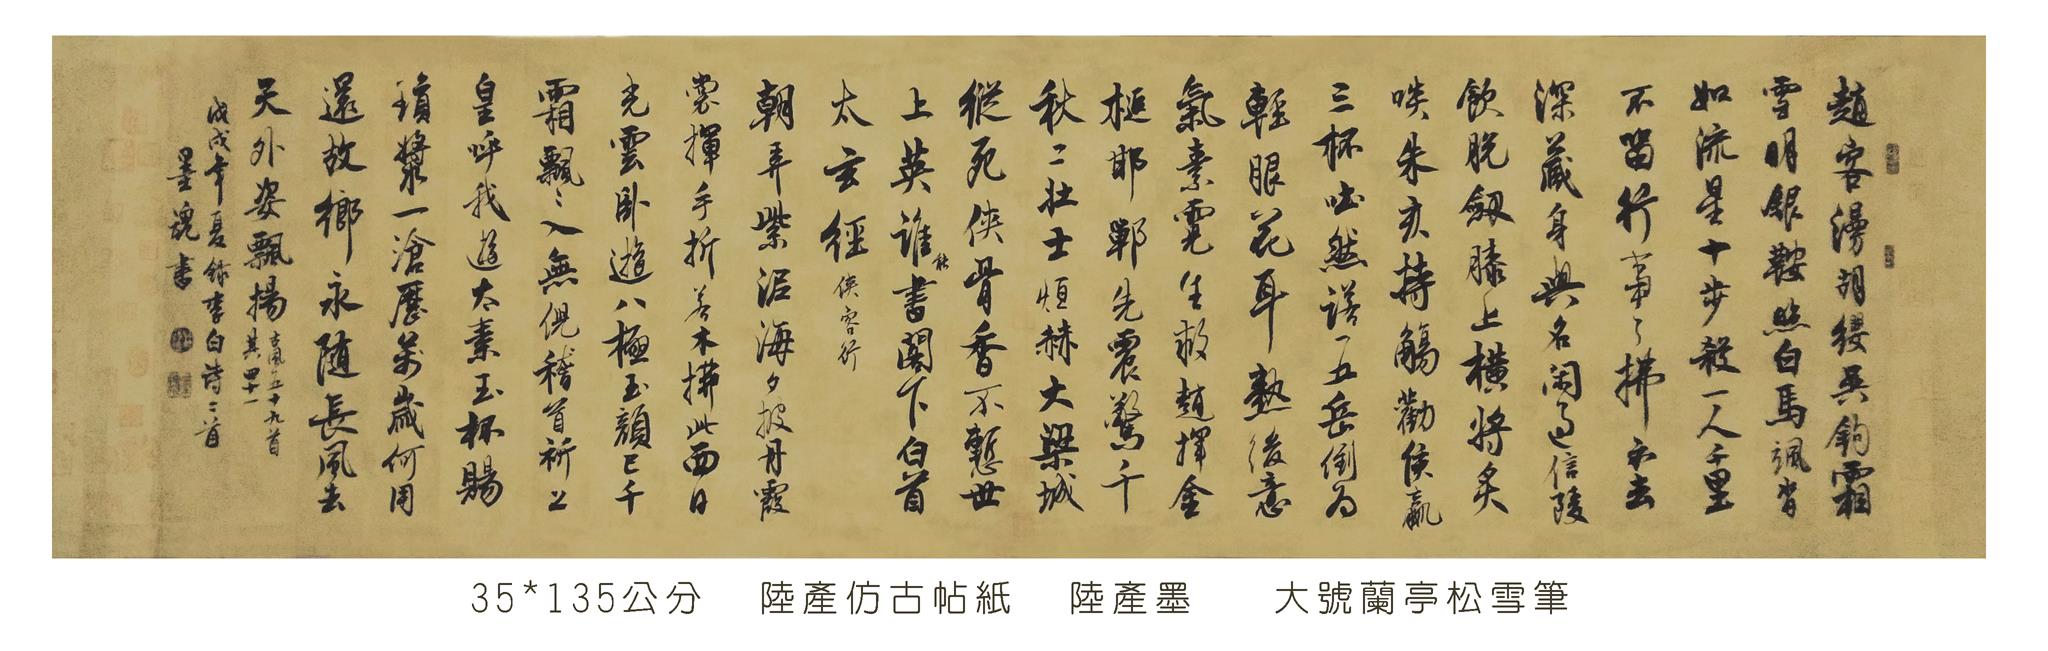 趙客漫胡纓吳鉤霜
雪明銀鞍照白馬颯沓
如流星十步殺一人千里
不留行事了拂衣去
深藏身與名閑過信陵
飲脫劔膝上橫將炙
啖朱亥持觴勸侯嬴
三杯吐然諾五岳倒為
輕眼花耳熱後意
氣素霓生救趙揮金
槌邯鄲先震驚千
秋二壯士恒赫大梁城
縱死俠骨香不慙世
上英誰能書閣下白首
太玄經 俠客行
朝弄紫泥海夕披丹霞
裳揮手折若木拂此西日
光雲臥遊八極玉顏已千
霜飄〻入無倪稽首祈上
皇呼我遊太素玉杯賜
瓊漿一滄歷萬歲何用
還故鄉永隨長風去
天外姿飄揚 古風五十九首
其四十一
戊戌年夏錄李白詩二首
墨魂書
35*135公分 陸產仿古帖紙 陸產墨 大號蘭亭松雪筆